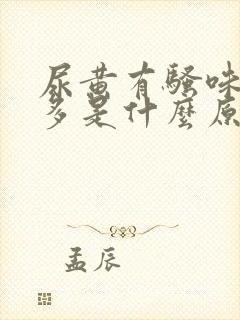 尿黄有騷味
多是什麼原
孟辰